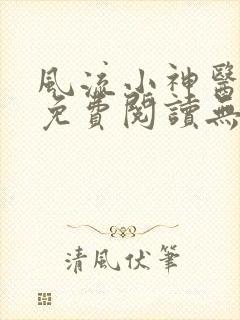 風流小神醫
免費閱讀無
清風伏筆